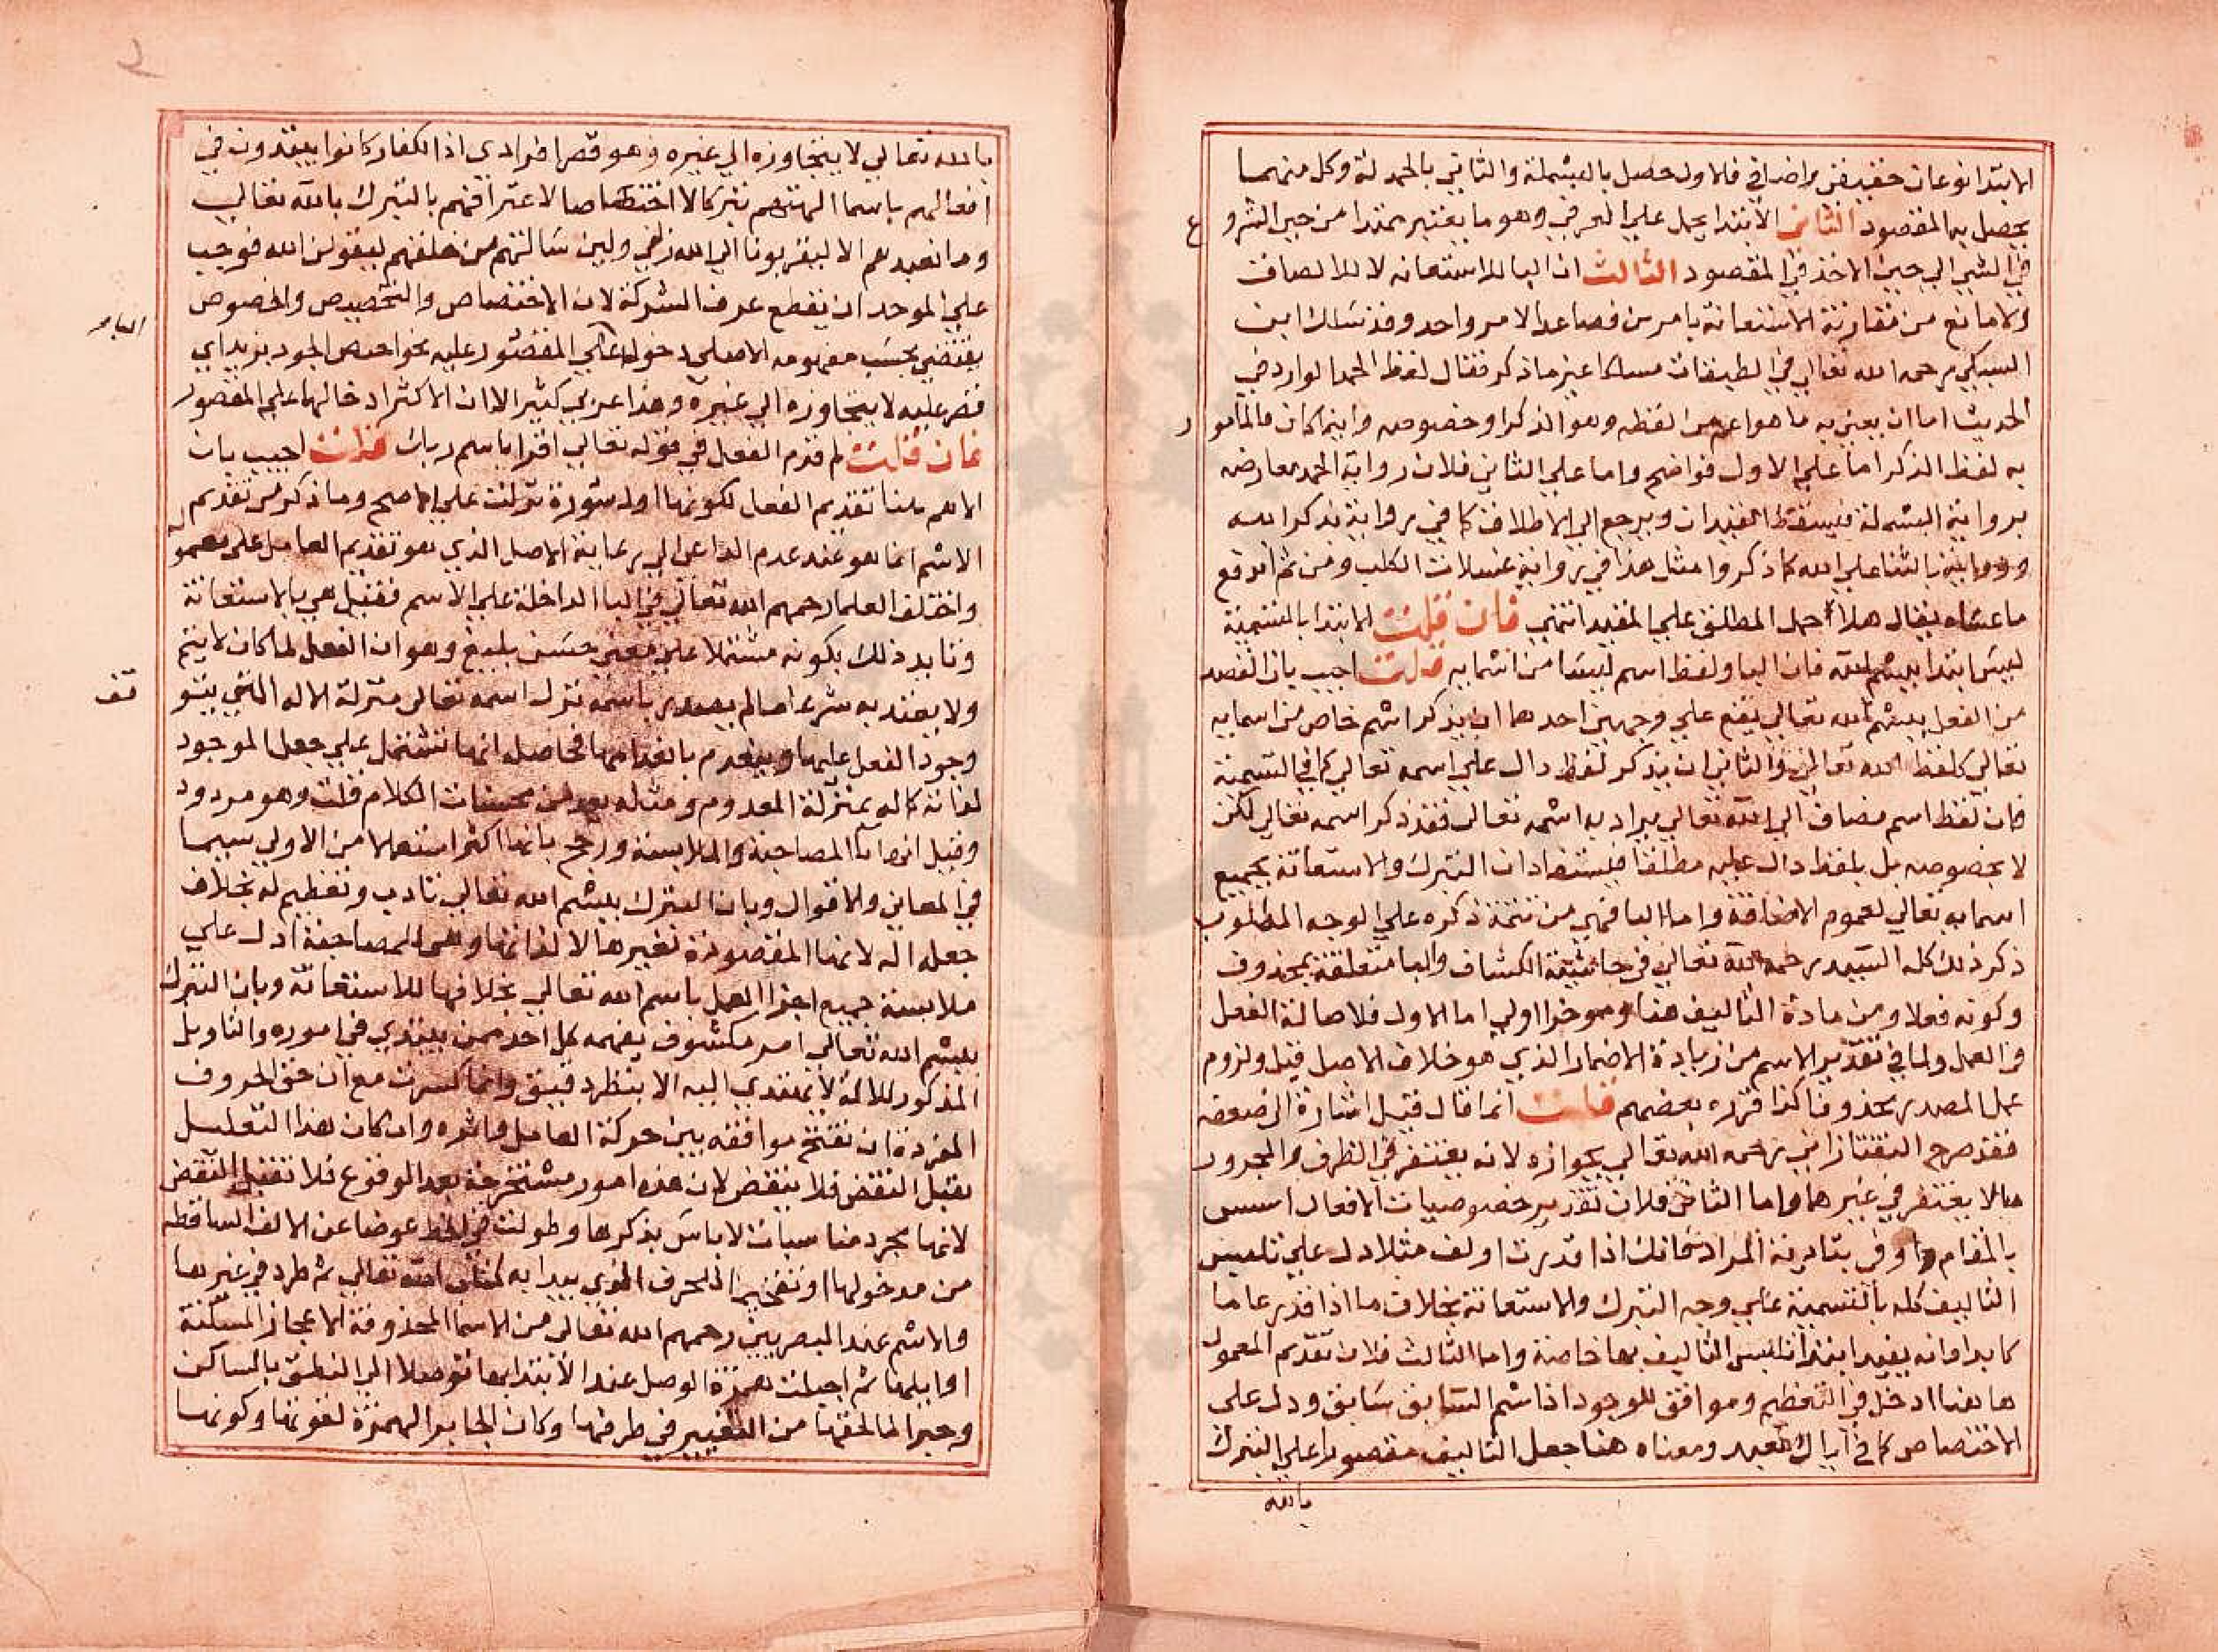 الابتدا نوعان حقيقي واضافي فالاول حصل بالبسملة والثاني بالحمدلة وكل منهما
يحصل به المقصود الثاني الابتدا يحمل علي العرفي وهو ما يعتبر ممتدا من حين الشرو
ع
في الشي الي حين الاخذ في المقصود الثالث ان البا للاستعانه لا للالصاق
ولا مانع من مقارنة الاستعانة بامرين فصاعدا لامر واحد وقد سلك ابن
السبكي رحمه الله تعالي في الطبقات مسلكا غير ما ذكر فقال لفظ الحمد الوارد في
الحديث اما ان يعني به ما هو اعم من لفظه وهو الذكر او خصوصه وايما كان فالمامو ر
به لفظ الذكر اما علي الاول فواضح واما علي الثاني فلان رواية الحمد معارضه
برواية البسملة فيسقط القيدان ويرجع الي الاطلاق كما في رواية بذكر الله
بالثنا علي الله كما ذكروا مثل هذا في رواية غسلات الكلب ومن ثم اندفع
ما عساه يقال هلا حمل المطلق علي المقيد انتهي فان قلت الابتدا بالتسمية
ليس ابتدا ببسم الله فان البا ولفظ اسم ليسا من اسمايه قلت اجيب بان القصد
من الفعل ببسم الله تعالي يقع علي وجهين احدهما ان يذكر اسم خاص من اسمايه
تعالي كلفظ الله تعالي والثاني ان يذكر لفظ دال علي اسمه تعالي كما في التسمية
فان لفظ اسم مضاف الي الله تعالي يراد به اسمه تعالي فقد ذكر اسمه تعالي لكن
لا بخصوصه بل بلفظ دال عليه مطلقا فيستفاد ان التبرك والاستعانة بجميع
اسمايه تعالي لعموم الاضافة واما البا فهي من تتمة ذكره علي الوجه المطلوب
ذكر ذلك كله السيد رحمه الله تعالي في حاشية الكشاف والبا متعلقة بمحذوف
وكونه فعلا ومن مادة التاليف هنا وموخرا اولي اما الاول فلاصالة الفعل
في العمل ولما في تقدير الاسم من زيادة الاضمار الذي هو خلاف الاصل قيل ولزوم
عمل المصدر محذوفا كذا قرره بعضهم قلت انما قال قيل اشارة الي ضعفه
فقد صرح التفتازاني رحمه الله تعالي بجوازه لانه يغتفر في الظرف والمجرور
ما لا يغتفر في غيرهما واما الثاني فلان تقدير خصوصيات الافعال امس
بالمقام واوفي بتادية المراد فانك اذا قدرت اولف مثلا دل علي تلبيس
التاليف كله بالتسمية علي وجه التبرك والاستعانة بخلاف ما اذا قدر عاما
كابدا فانه يفيد ابتدا تلبس التاليف بها خاصة واما الثالث فلان تقديم المعمول
هاهنا ادخل في التعظيم وموافق للوجود اذ اسم السابق سابق ودل علي
الاختصاص كما في اياك نعبد ومعناه هنا جعل التاليف مقصورا علي التبرك
بالله
بالله تعالي لا يتجاوزه الي غيره وهو قصر افرادي اذ الكفار كانوا يبتدون في
افعالهم باسما الهتهم تبركا لا اختصاصا لاعترافهم بالتبرك بالله تعالي
وما نعبدهم الا ليقربونا الي الله زلفي ولين سالتهم من خلقهم ليقولن الله فوجب
علي الموحد ان يقطع عرف الشركة لان الاختصاص والتخصيص والخصوص
يقتضي بحسب مفهومه الاصلي دخول علي المقصور عليه نحو اختص الجود بزيد اي
البا
قصر عليه لا يتجاوزه الي غيره وهذا عربي كثير الا ان الاكثر ادخالها علي المقصور
فان قلت لم قدم الفعل في قوله تعالي اقرا باسم ربك قلت اجيب بان
الاهم هنا تقديم الفعل لكونها اول سورة نزلت علي الاصح وما ذكر من تقديم
الاسم انما هو عند عدم الداعي الي رعاية الاصل الذي هو تقديم العامل علي معموله
واختلف العلما رحمهم الله تعالي في البا الداخلة علي الاسم فقيل هي بالاستعانة
وتايد ذلك بكونه مشتملا علي معني حسن بليغ وهو ان الفعل لما كان لا يتم
ولا يعتد به شرعا ما لم يصدر باسمه نزل اسمه تعالي منزلة الاله التي يتو
قف
وجود الفعل عليها وينعدم بانعدامها فحاصله انها تشتمل علي جعل الموجود
لفاته كماله بمنزلة المعدوم ومثله يعد من محسنات الكلام قلت وهو مردود
وقيل انها با المصاحبة والملابسة ورجح بانها اكثر استعمالا من الاولي سيما
في المعاني والاقوال وبان التبرك ببسم الله تعالي تادب وتعظيم له بخلاف
جعله اله لانها المقصودة لغيرها لا لذاتها وهي المصاحبة ادل علي
ملابسة جميع اجزا العمل باسم الله تعالي بخلافها للاستعانة وبان التبرك
ببسم الله تعالي امر مكشوف يفهمه كل احد ممن يبتدي في اموره والتاويل
المذكور للالة لا يهتدي اليه الا بنظر دقيق وانما كسرت مع ان حق الحروف
المفردة ان تفتح موافقة بين حركة العامل واثره وان كان هذا التعليل
يقبل النقض فلا ينقض لان هذه امور مستخرجة بعد الوقوع فلا تقبل النقض
لانها مجرد مناسبات لا باس بذكرها وطولت في الخط عوضا عن الالف الساقطه
من مدخولها او تفخيما للحرف الذي يبدا به كتاب الله تعالي ثم طرد في غيرها
والاسم عند البصريين رحمهم الله تعالي من الاسما المحذوفة الاعجاز المسكنة
اوايلها ثم اجتلبت همزة الوصل عند الابتدا بها توصلا الي النطق بالساكن
وجبرا لما لحقها من التغيير في طرفها وكان الجابر الهمزة لقوتها وكونها